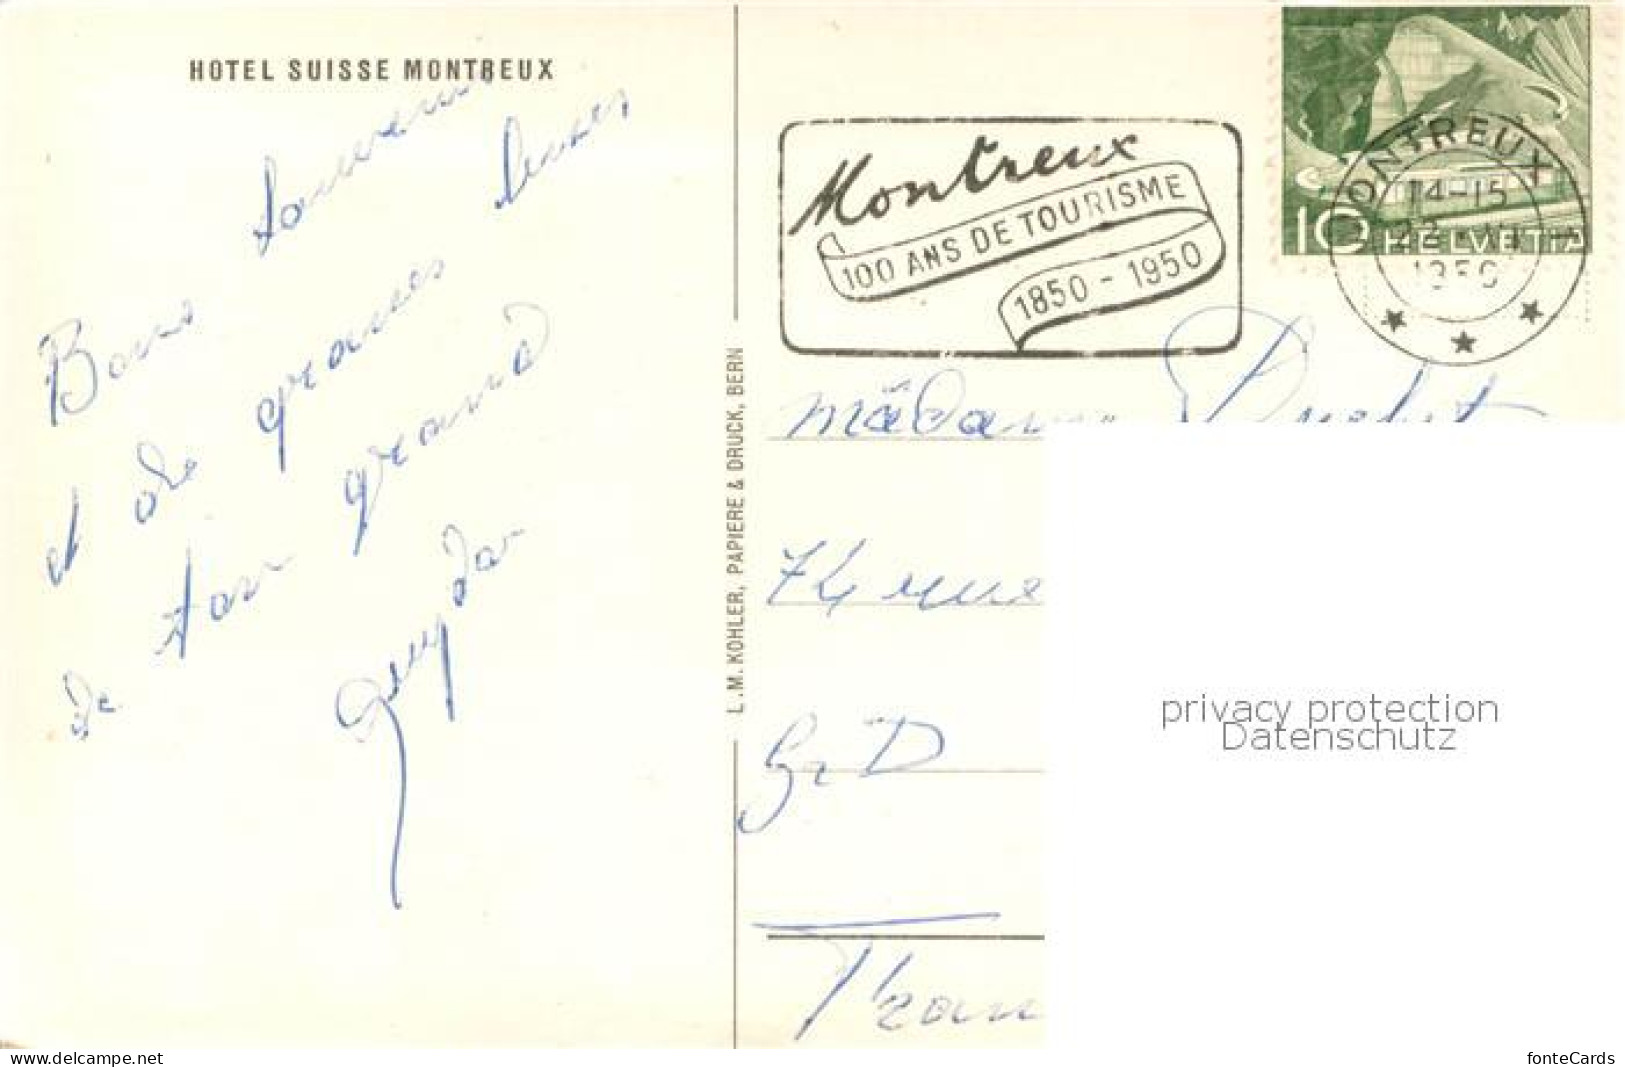 HOTEL SUISSE MONTREUX
Bons souvenirs
et de grosses bises
de ton grand
Guydon
L.M. KOHLER, PAPIERE & DRUCK, BERN
Montreux
100 ANS DE TOURISME
1850 - 1950
10 HELVETIA
MONTREUX
14-15
1950
Madame
74 rue
privacy protection
Datenschutz
www.delcampe.net
fonteCards